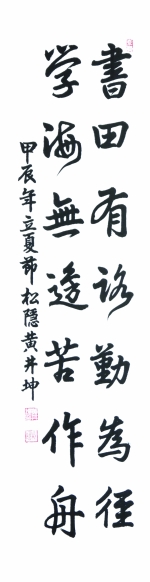 書田有路勤為径
学海無邊苦作舟
甲辰年立夏節松隐黄井坤